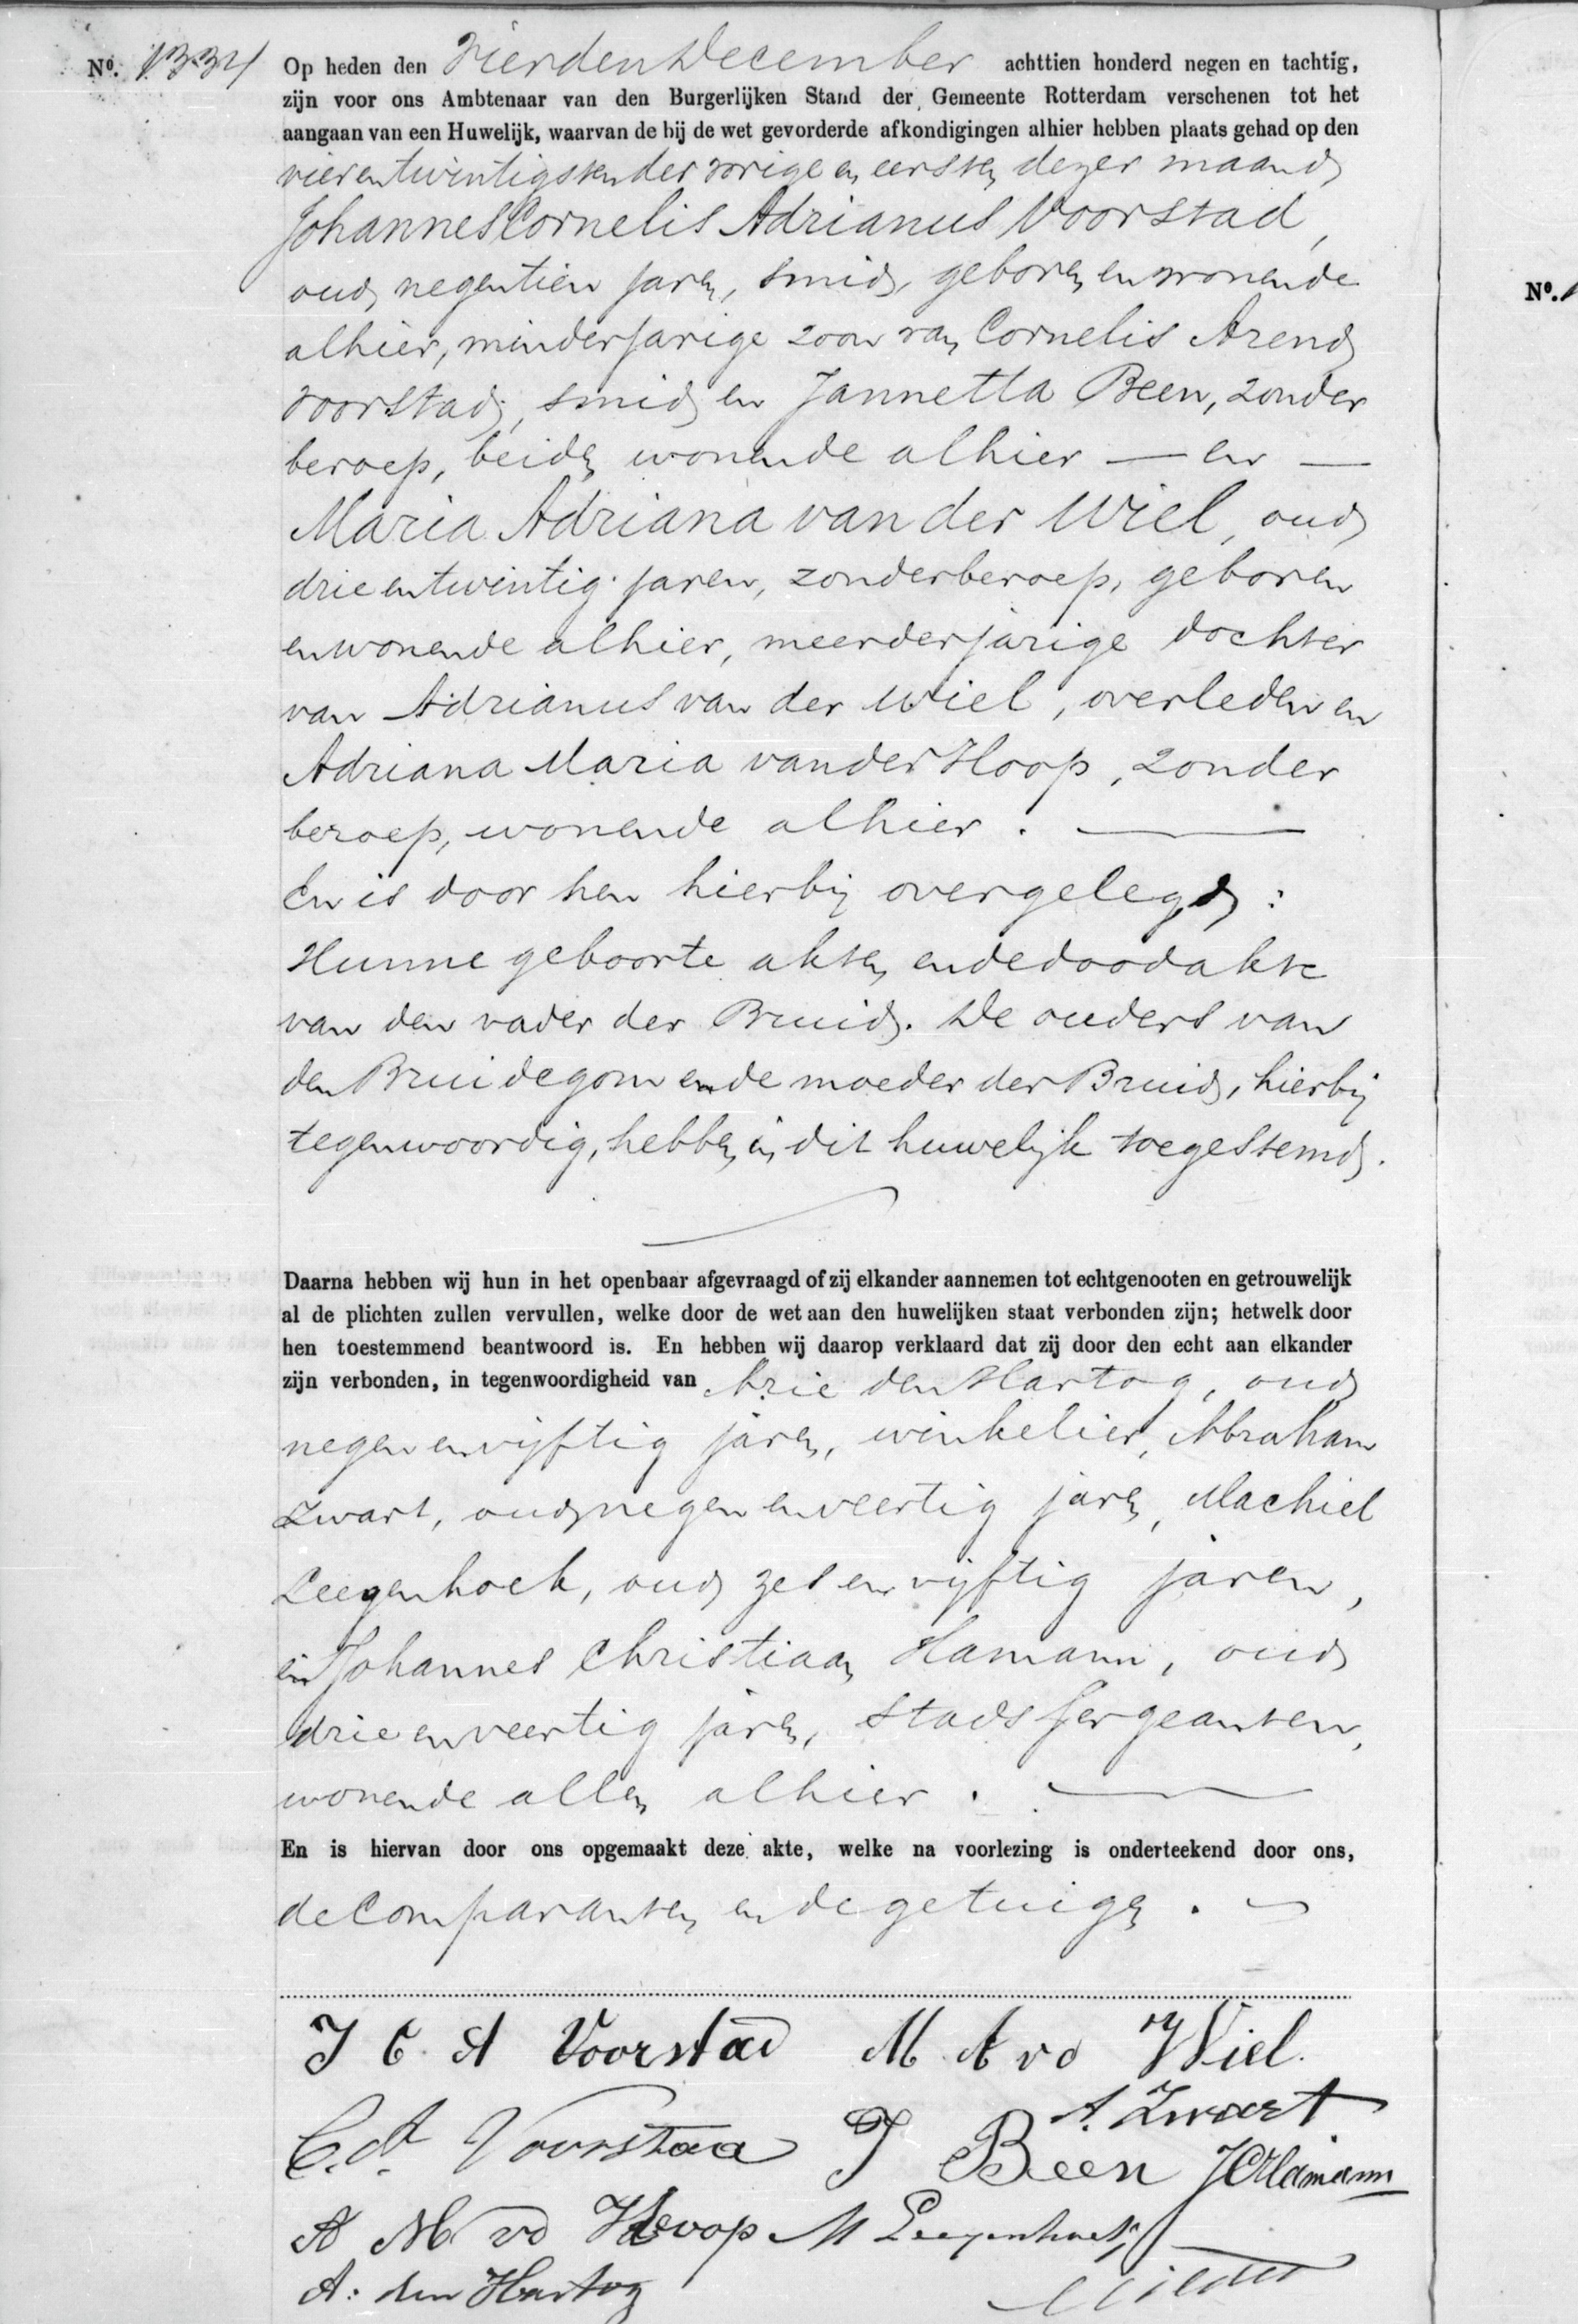 Nº. 1334 Op heden den Vierden December achttien honderd negen en tachtig,
zijn voor ons Ambtenaar van den Burgerlijken Stand der Gemeente Rotterdam verschenen tot het
aangaan van een Huwelijk, waarvan de bij de wet gevorderde afkondigingen alhier hebben plaats gehad op den
vierentwintigsten der vorige en eersten dezer maand
Johannes Cornelis Adrianus Voorstad,
oud negentien jaren, smid, geboren en wonende
alhier, minderjarige zoon van Cornelis Arend
Voorstad, smid en Jannetta Been, zonder
beroep, beiden wonende alhier — en —
Maria Adriana van der Wiel, oud
drieentwintig jaren, zonder beroep, geboren
en wonende alhier, meerderjarige dochter
van Adrianus van der Wiel, overleden en
Adriana Maria van der Hoop, zonder
beroep, wonende alhier. —
En is door hen hierbij overgelegd:
Hunne geboorte akten en de doodakte
van den vader der Bruid. De ouders van
den Bruidegom en de moeder der Bruid, hierbij
tegenwoordig, hebben in dit huwelijk toegestemd.
Daarna hebben wij hun in het openbaar afgevraagd of zij elkander aannemen tot echtgenooten en getrouwelijk
al de plichten zullen vervullen, welke door de wet aan den huwelijken staat verbonden zijn; hetwelk door
hen toestemmend beantwoord is. En hebben wij daarop verklaard dat zij door den echt aan elkander
zijn verbonden, in tegenwoordigheid van Arie den Hartog, oud
negen en vijftig jaren, winkelier, Abraham
Zwart, oud negen en veertig jaren, Machiel
Leegenhoek, oud zes en vijftig jaren,
en Johannes Christiaan Hamann, oud
drie en veertig jaren, stads sergeanten,
wonende allen alhier. —
En is hiervan door ons opgemaakt deze akte, welke na voorlezing is onderteekend door ons,
de Comparanten en de getuigen. —
J C. A Voorstad M. A vd Wiel.
A. Zwart
C. A. Voorstad J Been JCHamann
A M vd Hoop M Leegenhoek
A: den Hartog
Nº.